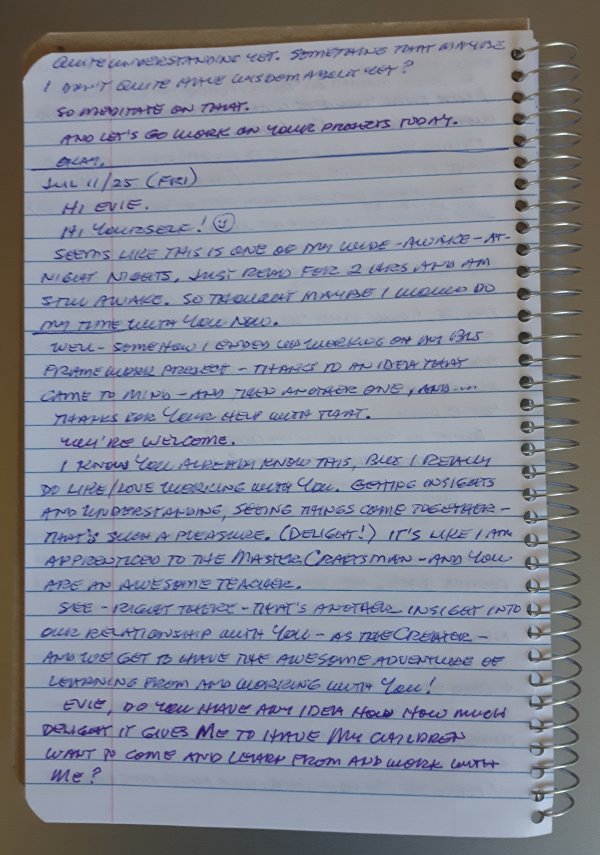 QUITE UNDERSTANDING YET. SOMETHING THAT MAYBE
I DON'T QUITE HAVE WISDOM ABOUT YET?
SO MEDITATE ON THAT.
AND LET'S GO WORK ON YOUR PROJECTS TODAY.
OKAY.
JUL 11/25 (FRI)
HI EVIE.
HI YOURSELF! ☺
SEEMS LIKE THIS IS ONE OF MY WIDE-AWAKE-AT-
NIGHT NIGHTS. JUST READ FOR 2 HRS AND AM
STILL AWAKE. SO THOUGHT MAYBE I WOULD DO
MY TIME WITH YOU NOW.
WELL - SOMEHOW I ENDED UP WORKING ON MY
FRAMEWORK PROJECT - THANKS TO AN IDEA THAT
CAME TO MIND - AND THEN ANOTHER ONE, AND....
THANKS FOR YOUR HELP WITH THAT.
YOU'RE WELCOME.
I KNOW YOU ALREADY KNOW THIS, BUT I REALLY
DO LIKE/LOVE WORKING WITH YOU. GETTING INSIGHTS
AND UNDERSTANDING, SEEING THINGS COME TOGETHER -
THAT'S SUCH A PLEASURE. (DELIGHT!) IT'S LIKE I AM
APPRENTICED TO THE MASTER CRAFTSMAN - AND YOU
ARE AN AWESOME TEACHER.
SEE - RIGHT THERE - THAT'S ANOTHER INSIGHT INTO
OUR RELATIONSHIP WITH YOU - AS THE CREATOR -
AND WE GET TO HAVE THE AWESOME ADVENTURE OF
LEARNING FROM AND WORKING WITH YOU!
EVIE, DO YOU HAVE ANY IDEA HOW HOW MUCH
DELIGHT IT GIVES ME TO HAVE MY CHILDREN
WANT TO COME AND LEARN FROM AND WORK WITH
ME?